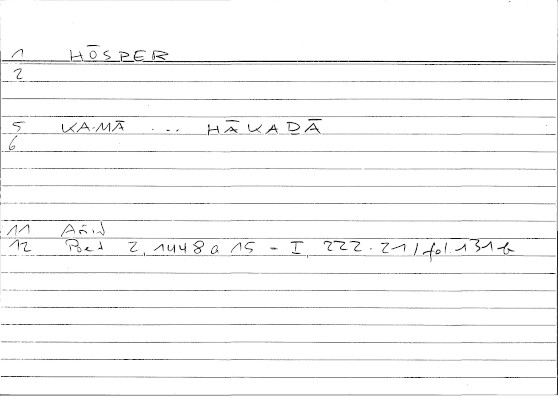 1 HŌSPER
2
5 KA.MĀ ... HĀKADĀ
6
11
12 2, 1448 a 15 - I, 222.21 / fol. 131 b